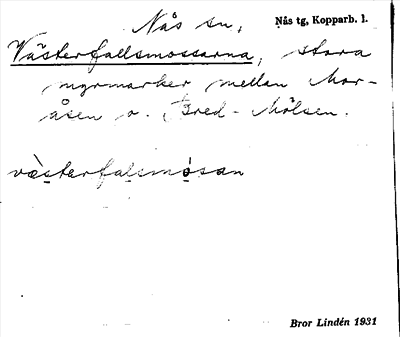 Nås sn,
Nås tg, Kopparb. l.
Västerfallsmossarna, stora
myrmarker mellan Mor-
åsen o. Bred-Mölsen.
væ̀sterfalsmósan
Bror Lindén 1931